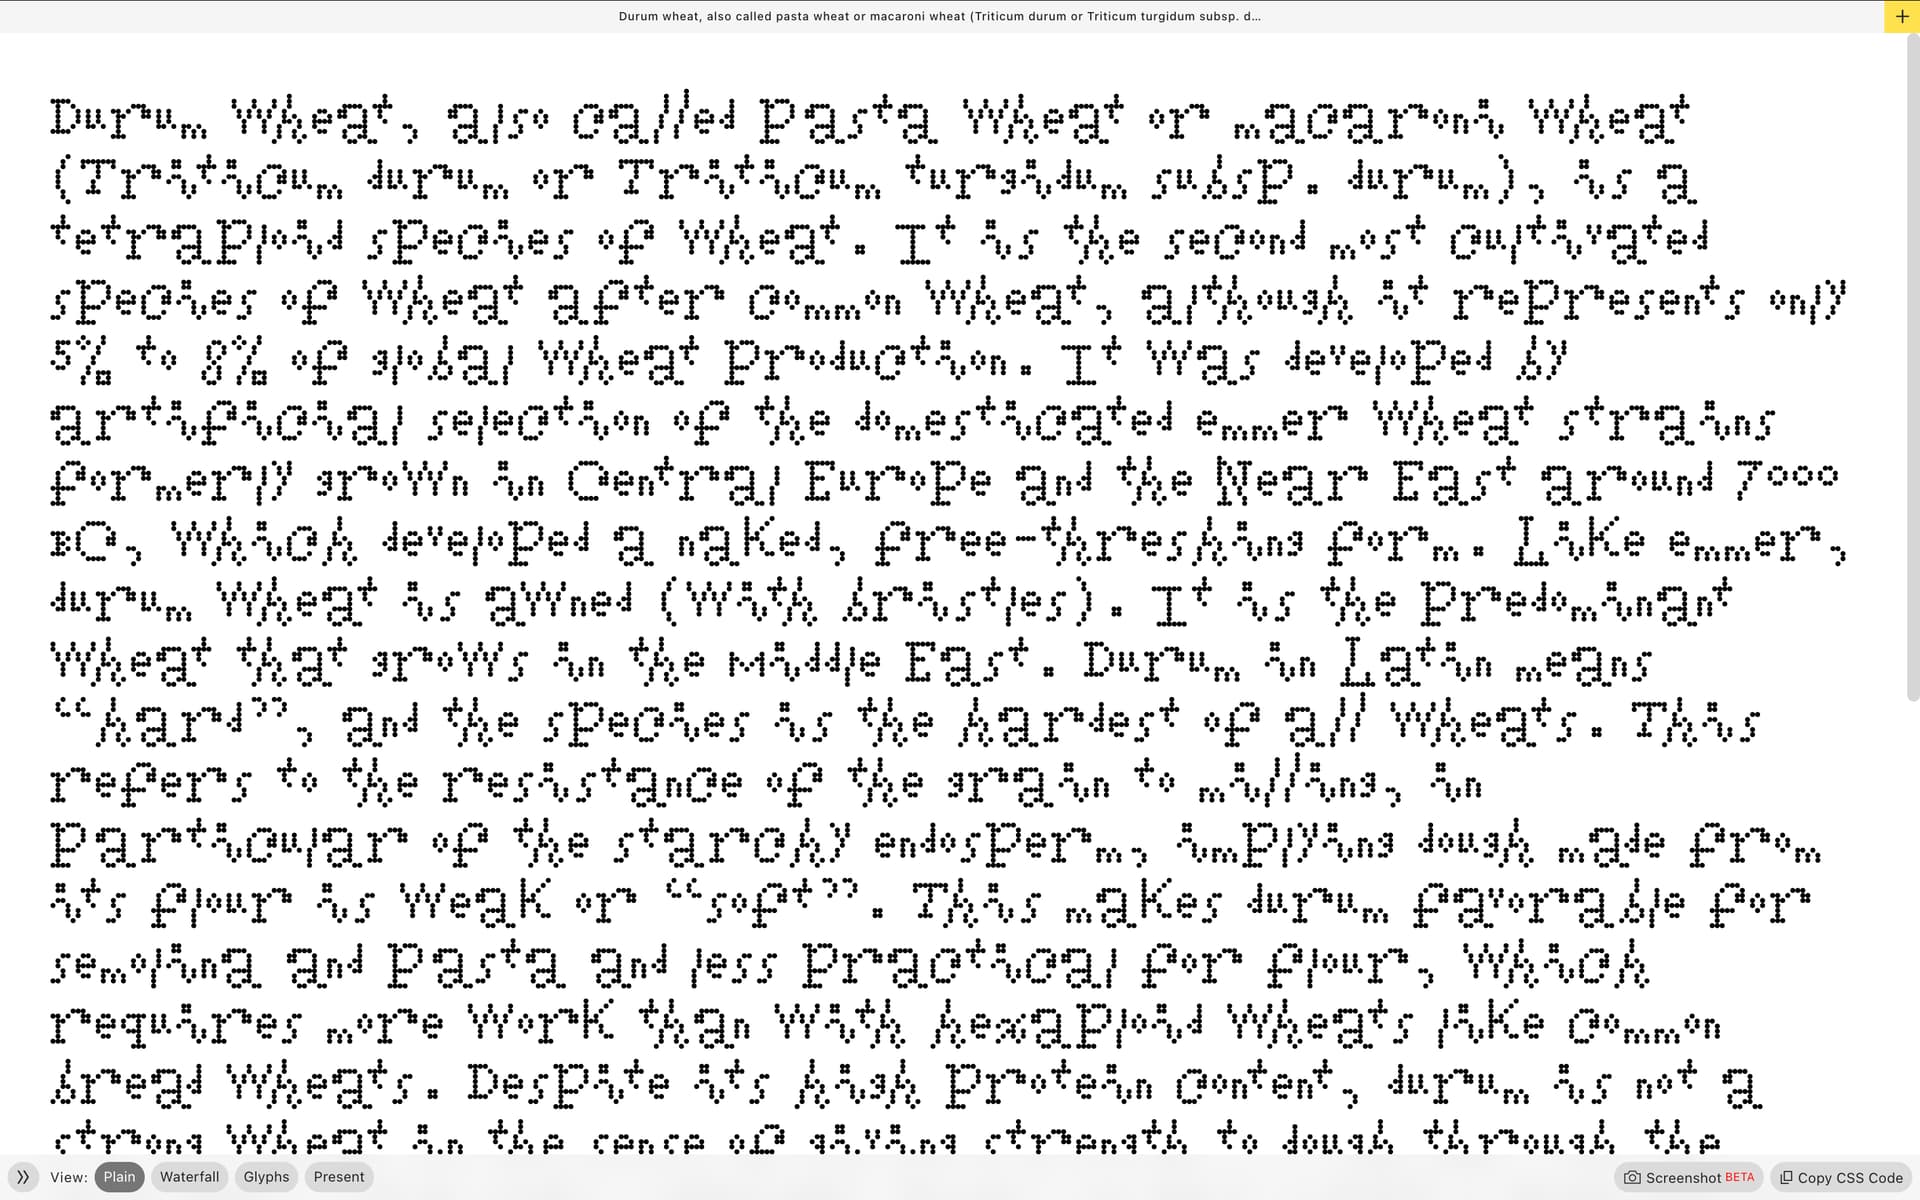 Durum wheat, also called pasta wheat or macaroni wheat (Triticum durum or Triticum turgidum subsp. d…
+
Durum wheat, also called pasta wheat or macaroni wheat
(Triticum durum or Triticum turgidum subsp. durum), is a
tetraploid species of wheat. It is the second most cultivated
species of wheat after common wheat, although it represents only
5% to 8% of global wheat production. It was developed by
artificial selection of the domesticated emmer wheat strains
formerly grown in Central Europe and the Near East around 7000
BC, which developed a naked, free-threshing form. Like emmer,
durum wheat is awned (with bristles). It is the predominant
wheat that grows in the Middle East. Durum in Latin means
“hard”, and the species is the hardest of all wheats. This
refers to the resistance of the grain to milling, in
particular of the starchy endosperm, implying dough made from
its flour is weak or “soft”. This makes durum favorable for
semolina and pasta and less practical for flour, which
requires more work than with hexaploid wheats like common
bread wheats. Despite its high protein content, durum is not a
strong wheat in the sense of giving strength to dough through the
View: Plain Waterfall Glyphs Present Screenshot BETA Copy CSS Code